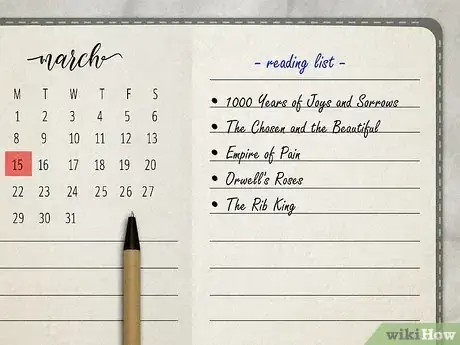 march
M T W T F S
1 2 3 4 5 6
8 9 10 11 12 13
15 16 17 18 19 20
22 23 24 25 26 27
29 30 31
- reading list -
• 1000 Years of Joys and Sorrows
• The Chosen and the Beautiful
• Empire of Pain
• Orwell's Roses
• The Rib King
wikiHow